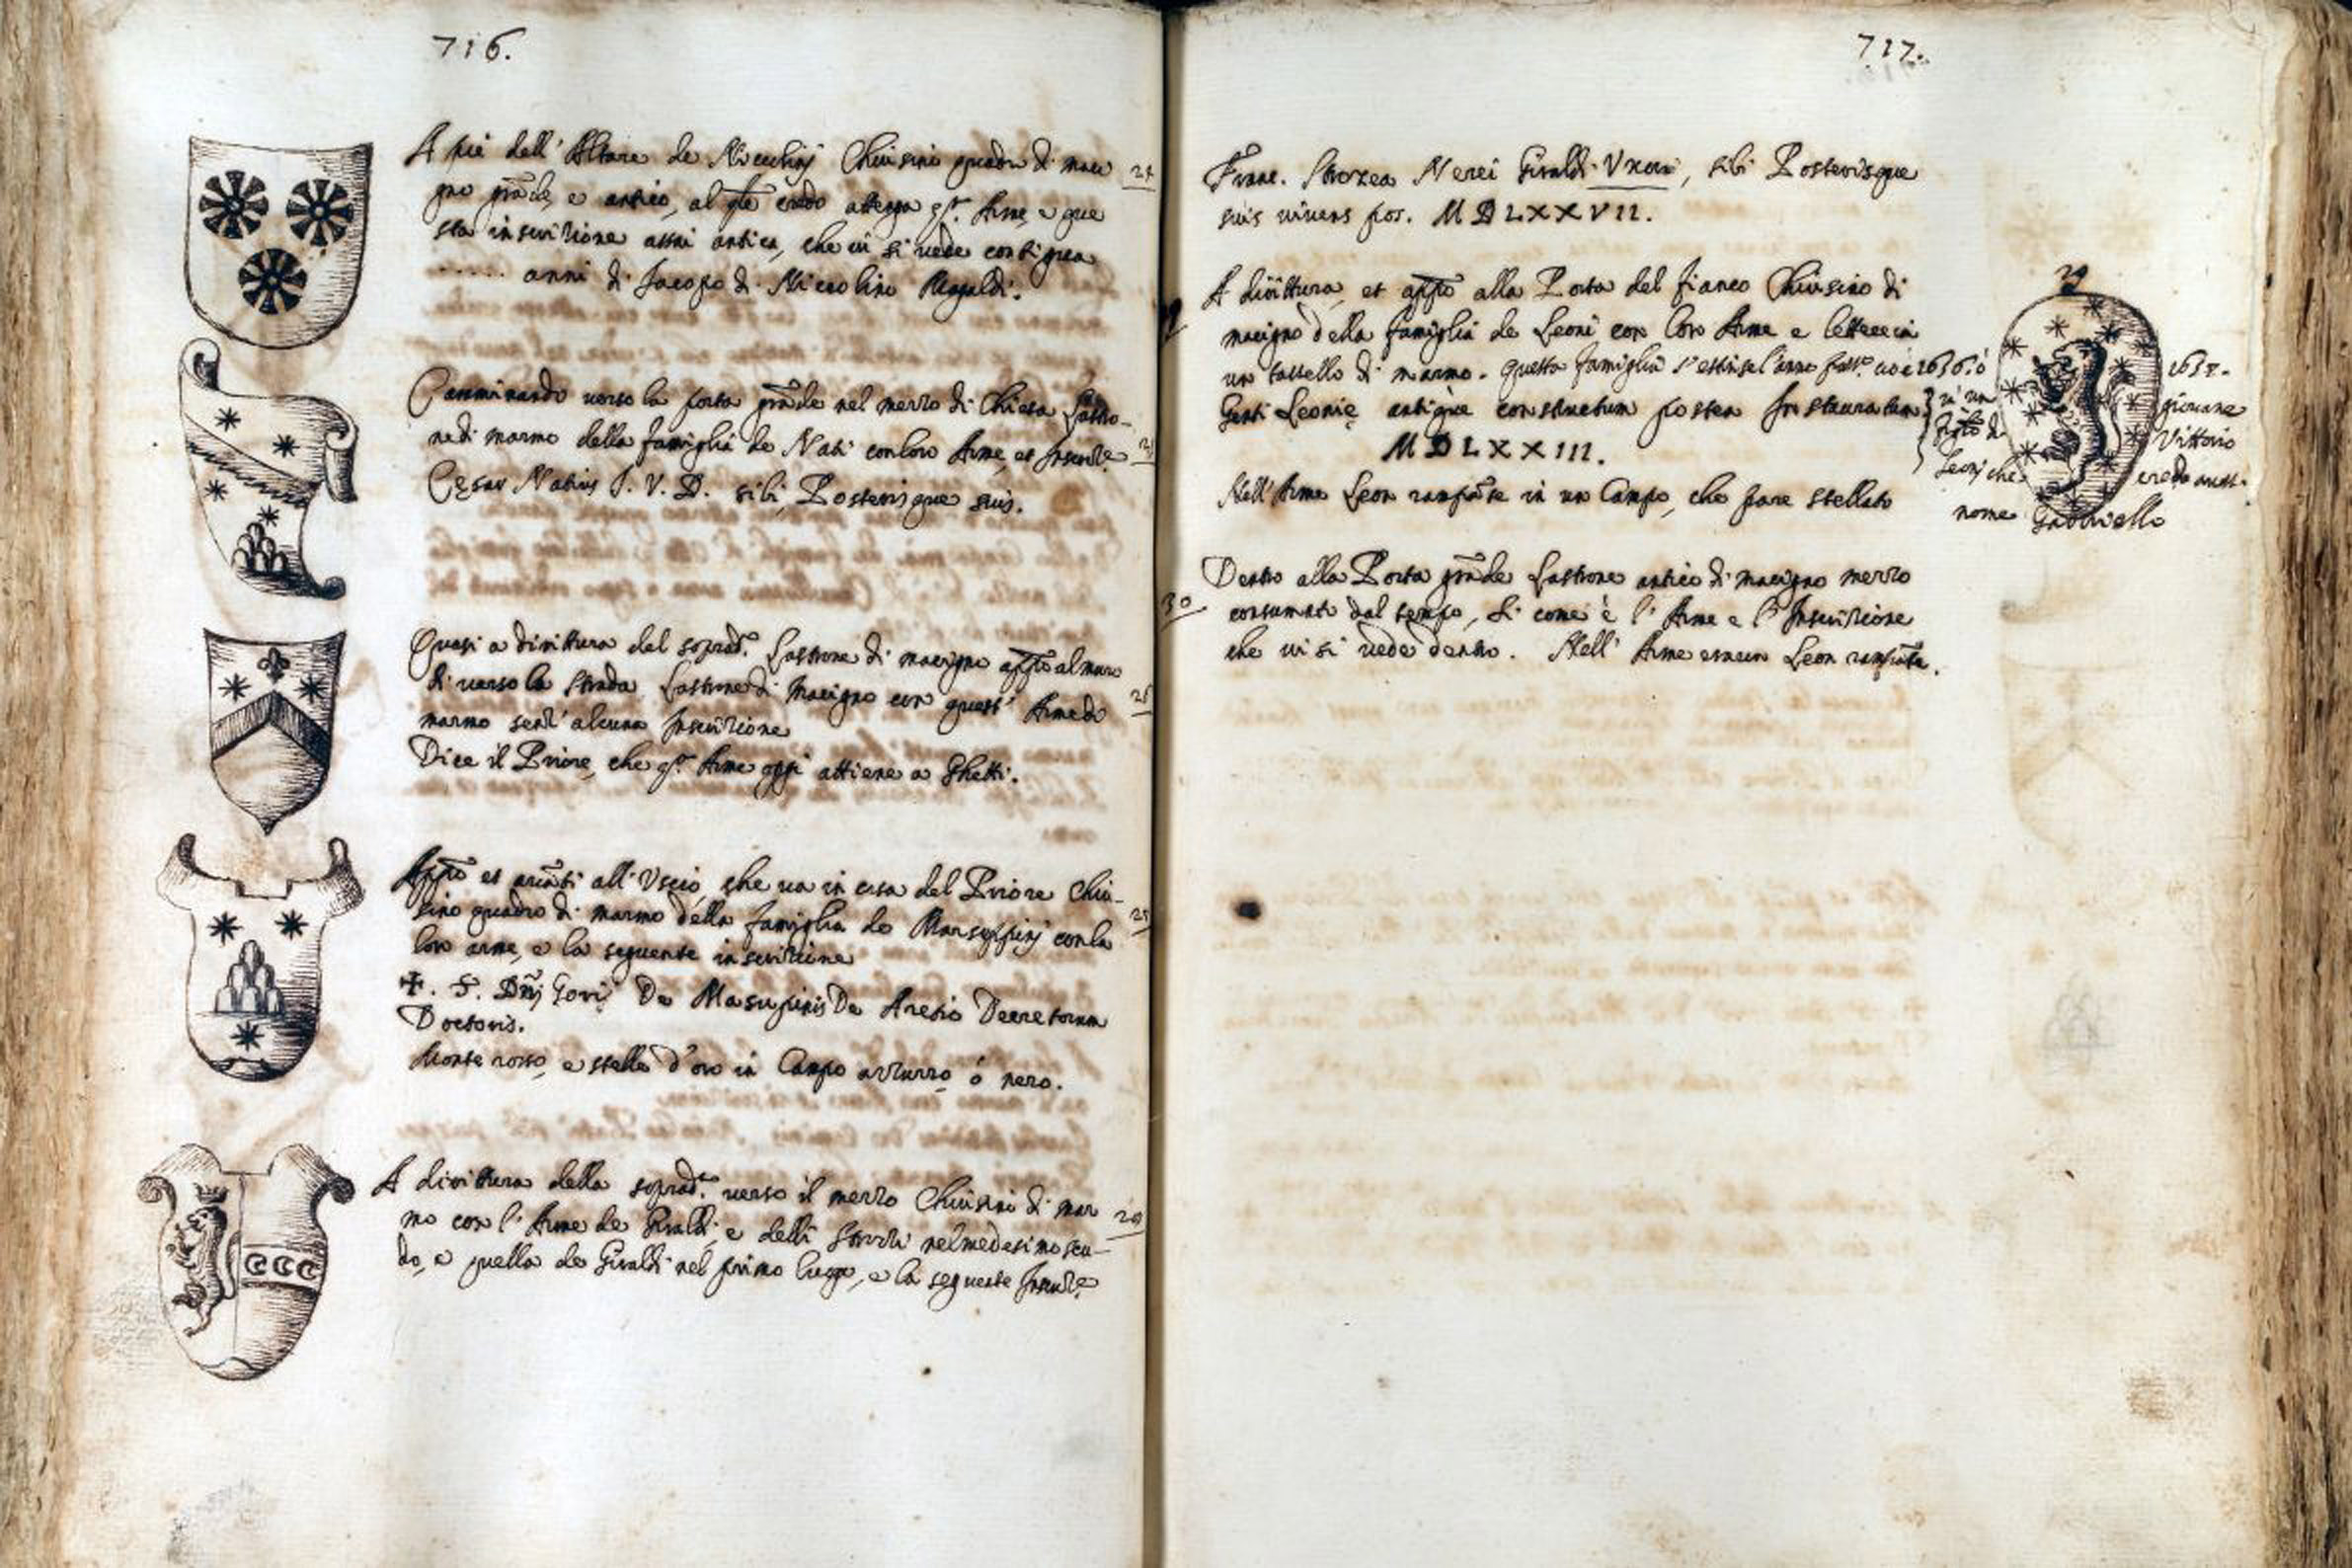 716.
A piè dell' Altare de Niccolini Chiusino quadro di maci
gno grãde, e antico, al q̃le credo attenga q.ª Arme, e que
sta inscrizione assai antica, che vi si vede contigua
...... anni di Jacopo di Niccolino
24
Camminando verso la porta grãde nel mezzo di Chiesa Lastro-
ne di marmo della famiglia de Nati con loro Arme, et Inscriz.e
Cesar Natius J. V. D. sibi, Posterisque suis.
Quasi a dirittura del soprad.o Lastrone di macigno app̃o al muro
di verso la strada Lastrone di Macigno con quest' Arme di
marmo senz' alcuna Inscrizione
Dice il Priore, che q.ª Arme oggi attiene a Ghetti.
26
App̃o et avãti all' Uscio, che va in casa del Priore Chiu-
sino quadro di marmo della famiglia de Marsuppini con la
loro arme, e la seguente inscrizione
✠. S. Dñi Gori De Masupinis De Aretio Decretorum
Doctoris.
Monte rosso, e stelle d'oro in Campo azzurro, ó nero.
A dirittura della soprad.ª verso il mezzo Chiusino di mar
mo con l' Arme de Giraldi, e delli Strozzi nel medesimo scu-
do, e quella de Giraldi nel primo luogo, e la seguente Inscriz.e
717.
Franc. Strozza Nerei Giraldi Uxori, sibi Posterisque
suis vivens pos. MDLXXVII.
A dirittura, et app̃o alla Porta del fianco Chiusino di
macigno della famiglia de Leoni con loro Arme e lettere in
un tassello di marmo. questa famiglia s'estinse l'anno pass.o cioè 1636. ò 1637.
Genti Leonię antique constructum postea Instauratum
MDLXXIII.
Nell' Arme Leon rampãte in un Campo, che pare stellato
29
in un
giovane
Vittorio
Leoni che
credo avess.
nome Gabriello
Dentro alla Porta grãde Lastrone antico di macigno mezzo
consumato dal tempo, si come è l' Arme e l' Inscrizione
che vi si vede dentro. Nell' Arme era un Leon rampãte.
30